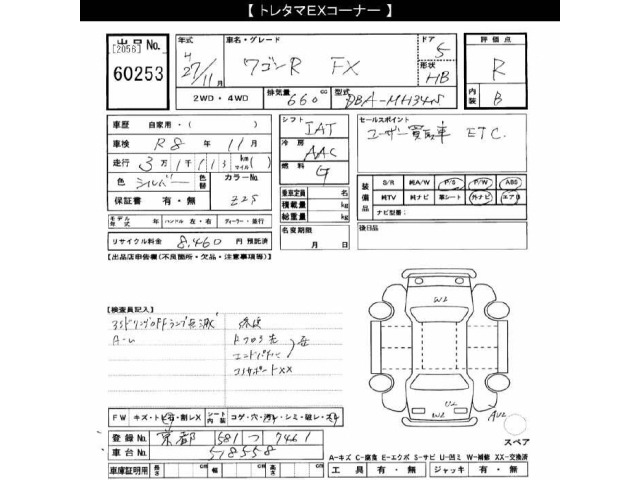 【 トレタマEXコーナー 】
出品 No.
[2056]
60253
年式
H
27/11月
車名・グレード
ワゴンR FX
ドア
5
形状
HB
評価点
R
内装
B
2WD・4WD
排気量
660 cc
型式
DBA-MH34S
車歴 自家用・( )
車検 R8 年 11 月
走行 3万1千113 km (マイル)
色 シルバー 色替 カラーNo.
Z2S
保証書 有・無
シフト
IAT
冷房
AAC
燃料
G
セールスポイント
ユーザー買取車 ETC.
乗車定員 名
積載量 kg
総重量 kg
装備品
S/R 純A/W P/S P/W ABS
純TV 純ナビ 革シート 外ナビ エアB
ナビ型番:
モデル年式 年 ハンドル 左・右 ディーラー・並行
リサイクル料金 8,460 円 預託済
名変期限
月 日
後日品
【出品店申告欄(不良箇所・欠品・注意事項等)】
【検査員記入】
修復
エンドパネル
コアサポートXX
W2
U2
AU2
FW キズ・トビ石・割レX シート内装 コゲ・穴・汚レ・シミ・破レ・スレ
登録No. 京都 581 つ 7461
車台No. 518558
車庫証明用 長さ cm 幅 cm 高さ cm
スペア
A=キズ C=腐食 E=エクボ S=サビ U=凹ミ W=補修 XX=交換済
工具 有・無 ジャッキ 有・無